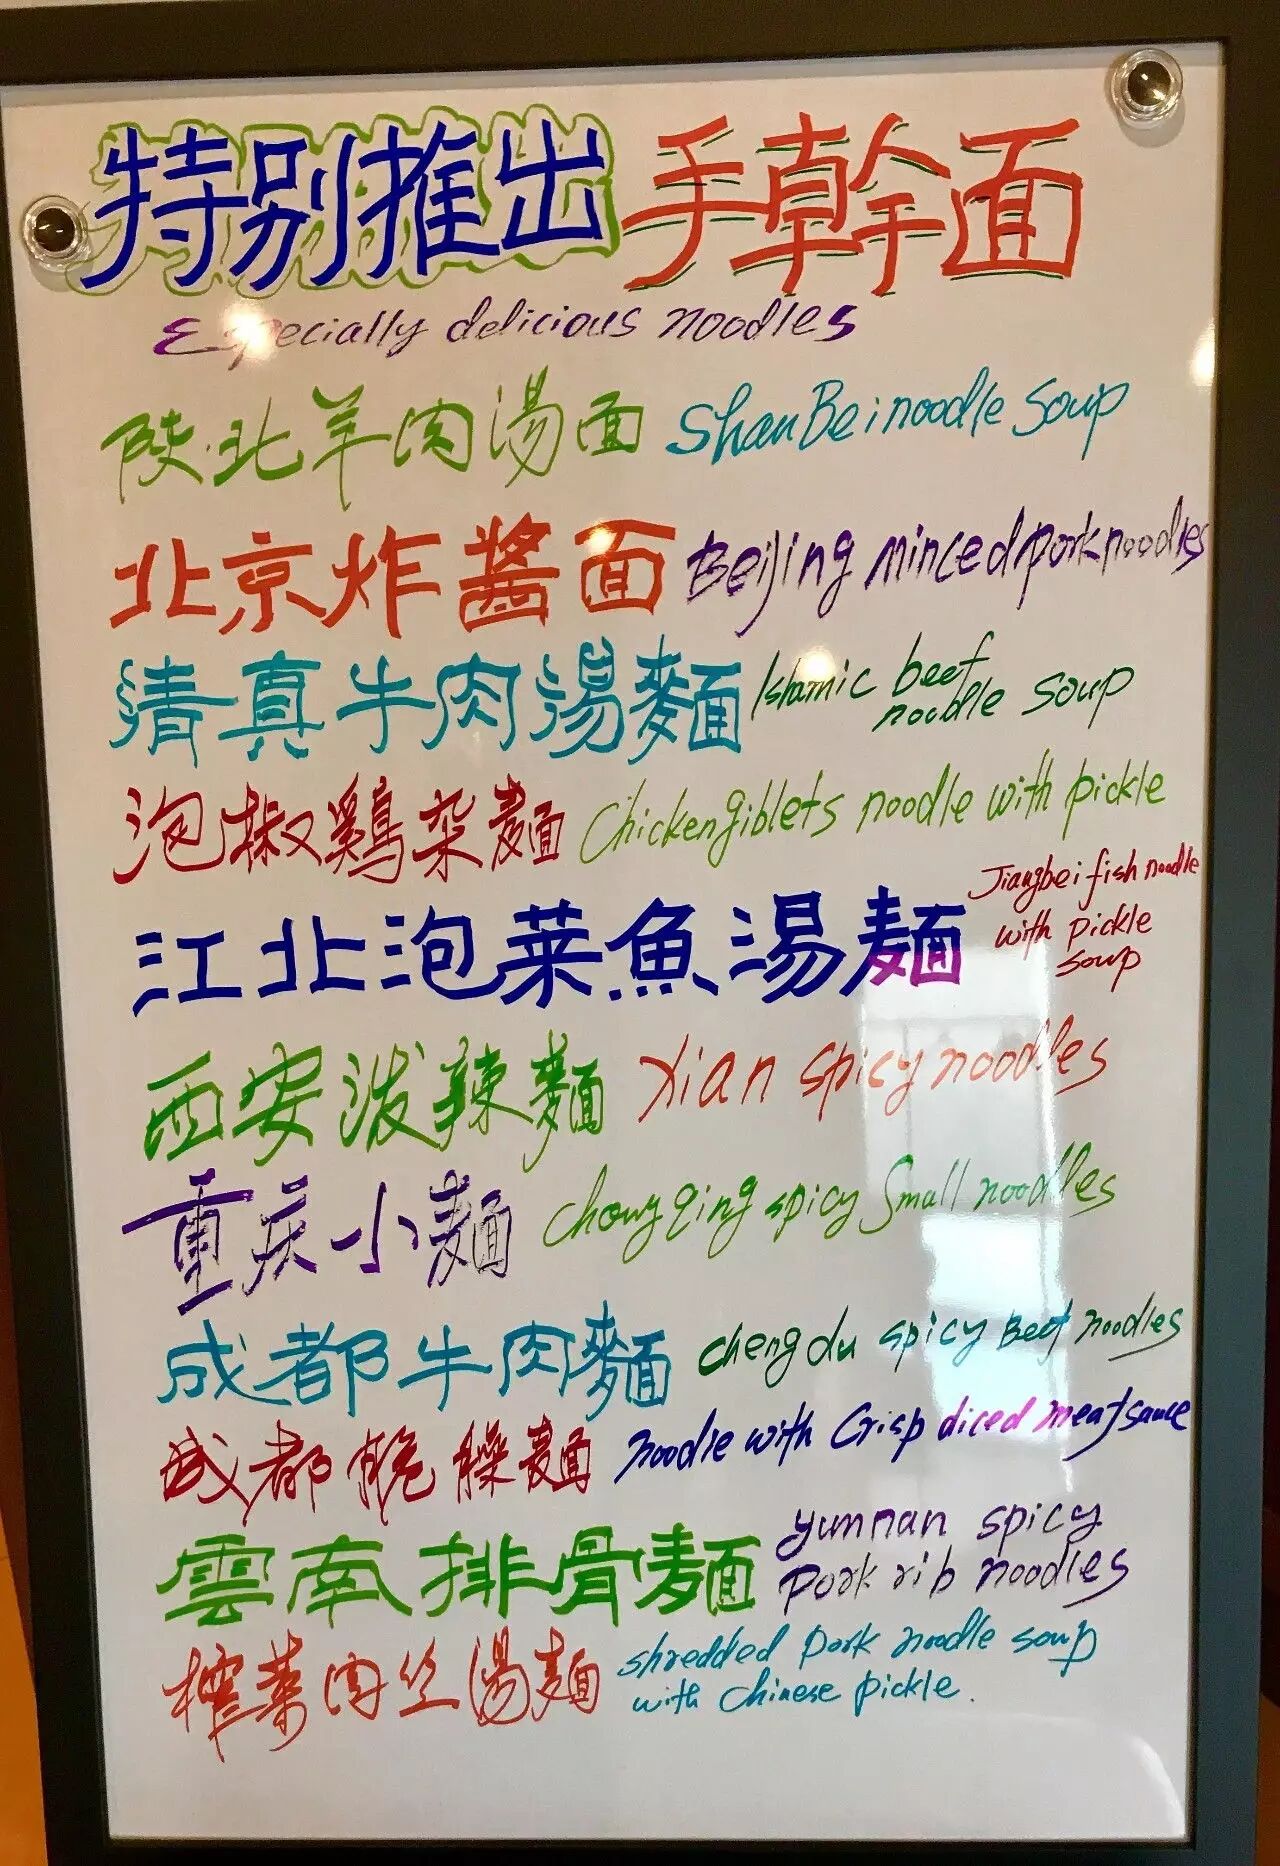 特别推出 手幹面
Especially delicious noodles
陕北羊肉汤面 ShanBei noodle soup
北京炸醬面 Beijing minced pork noodles
清真牛肉湯麵 Islamic beef noodle soup
泡椒鷄杂麵 Chicken giblets noodle with pickle
江北泡菜魚湯麵 Jiangbei fish noodle with pickle soup
西安泼辣麵 Xian spicy noodles
重庆小麵 Chongqing spicy Small noodles
成都牛肉麵 chengdu spicy Beef noodles
成都脆臊麵 noodle with Crisp diced meat sauce
雲南排骨麵 yunnan spicy pork rib noodles
榨菜肉丝湯麵 shredded pork noodle soup with Chinese pickle.